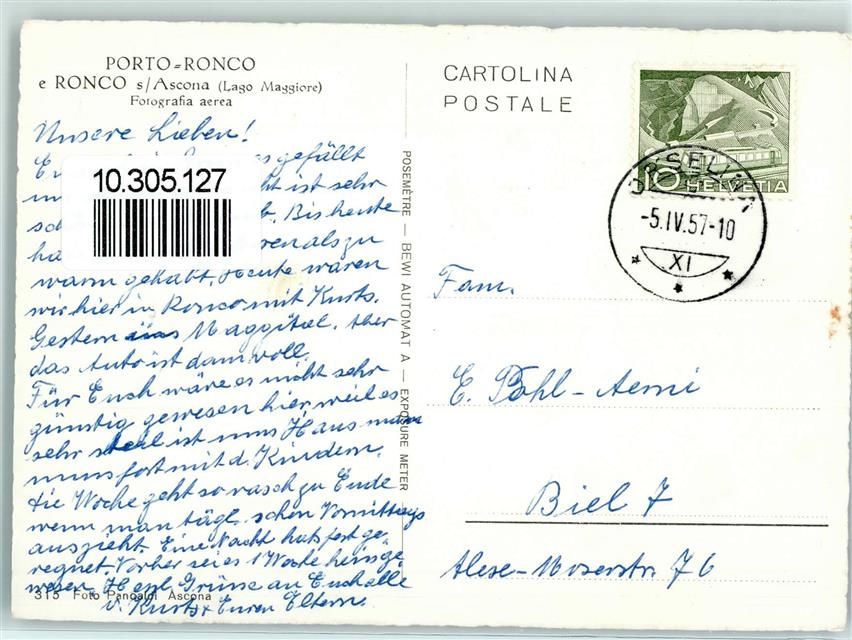 PORTO=RONCO
e RONCO s/Ascona (Lago Maggiore)
Fotografia aerea
Unsere Lieben!
gefällt
ht ist sehr
Bis heute
10.305.127
als zu
warm gehabt. Heute waren
wir hier in Ronco mit Kurts.
Gestern ins Maggital. Aber
das Auto ist dann voll.
Für Euch wäre es nicht sehr
günstig gewesen hier weil es
sehr steil ist ums Haus
mit d. Kindern.
Die Woche geht so rasch zu Ende
wenn man tägl. schon Vormittags
auszieht. Eine Nacht hats fest ge-
regnet. Vorher sei es 1 Woche heiss ge-
wesen. Herzl. Grüsse an Euch alle
v. Kurts + Euren Eltern.
315 Foto Pancaldi Ascona
POSEMÈTRE — BEWI AUTOMAT A — EXPOSURE METER
CARTOLINA
POSTALE
10 HELVETIA
-5.IV.57-10
XI
Fam.
E. Pohl-Aerni
Biel 7
Alex-Moserstr. 76